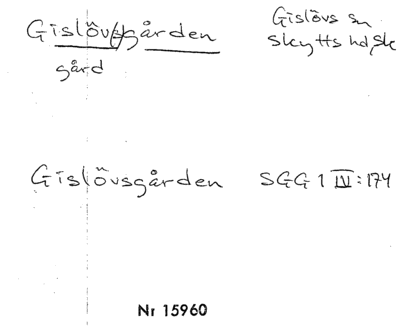 Gislöv(s)gården
gård
Gislövs sn
Skytts hd, Sk
Gislövsgården SGG 1 IV:174
Nr 15960